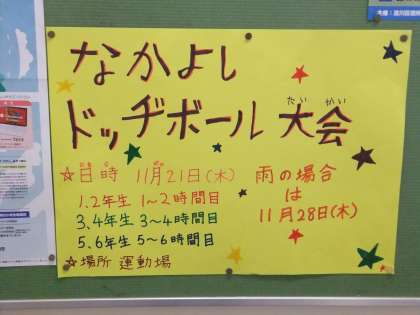 なかよし
ドッヂボール 大会
たい かい
☆日時 11月21日(木)
1.2年生 1〜2時間目
3.4年生 3〜4時間目
5.6年生 5〜6時間目
☆場所 運動場
雨の場合
は
11月28日(木)